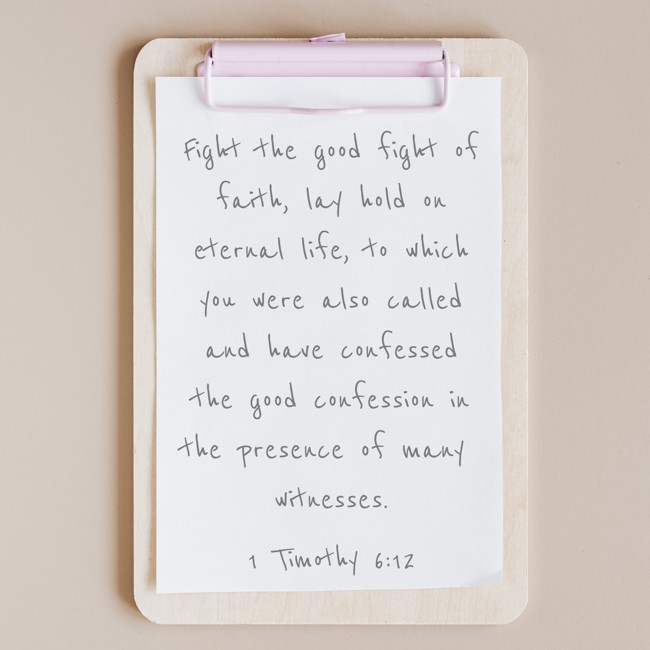 Fight the good fight of
faith, lay hold on
eternal life, to which
you were also called
and have confessed
the good confession in
the presence of many
witnesses.
1 Timothy 6:12